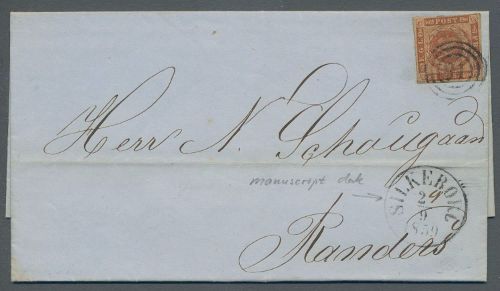 KGL POST FRM
Herr N. Schougaard
manuscript date
SILKEBORG
29
9
1859
Randers